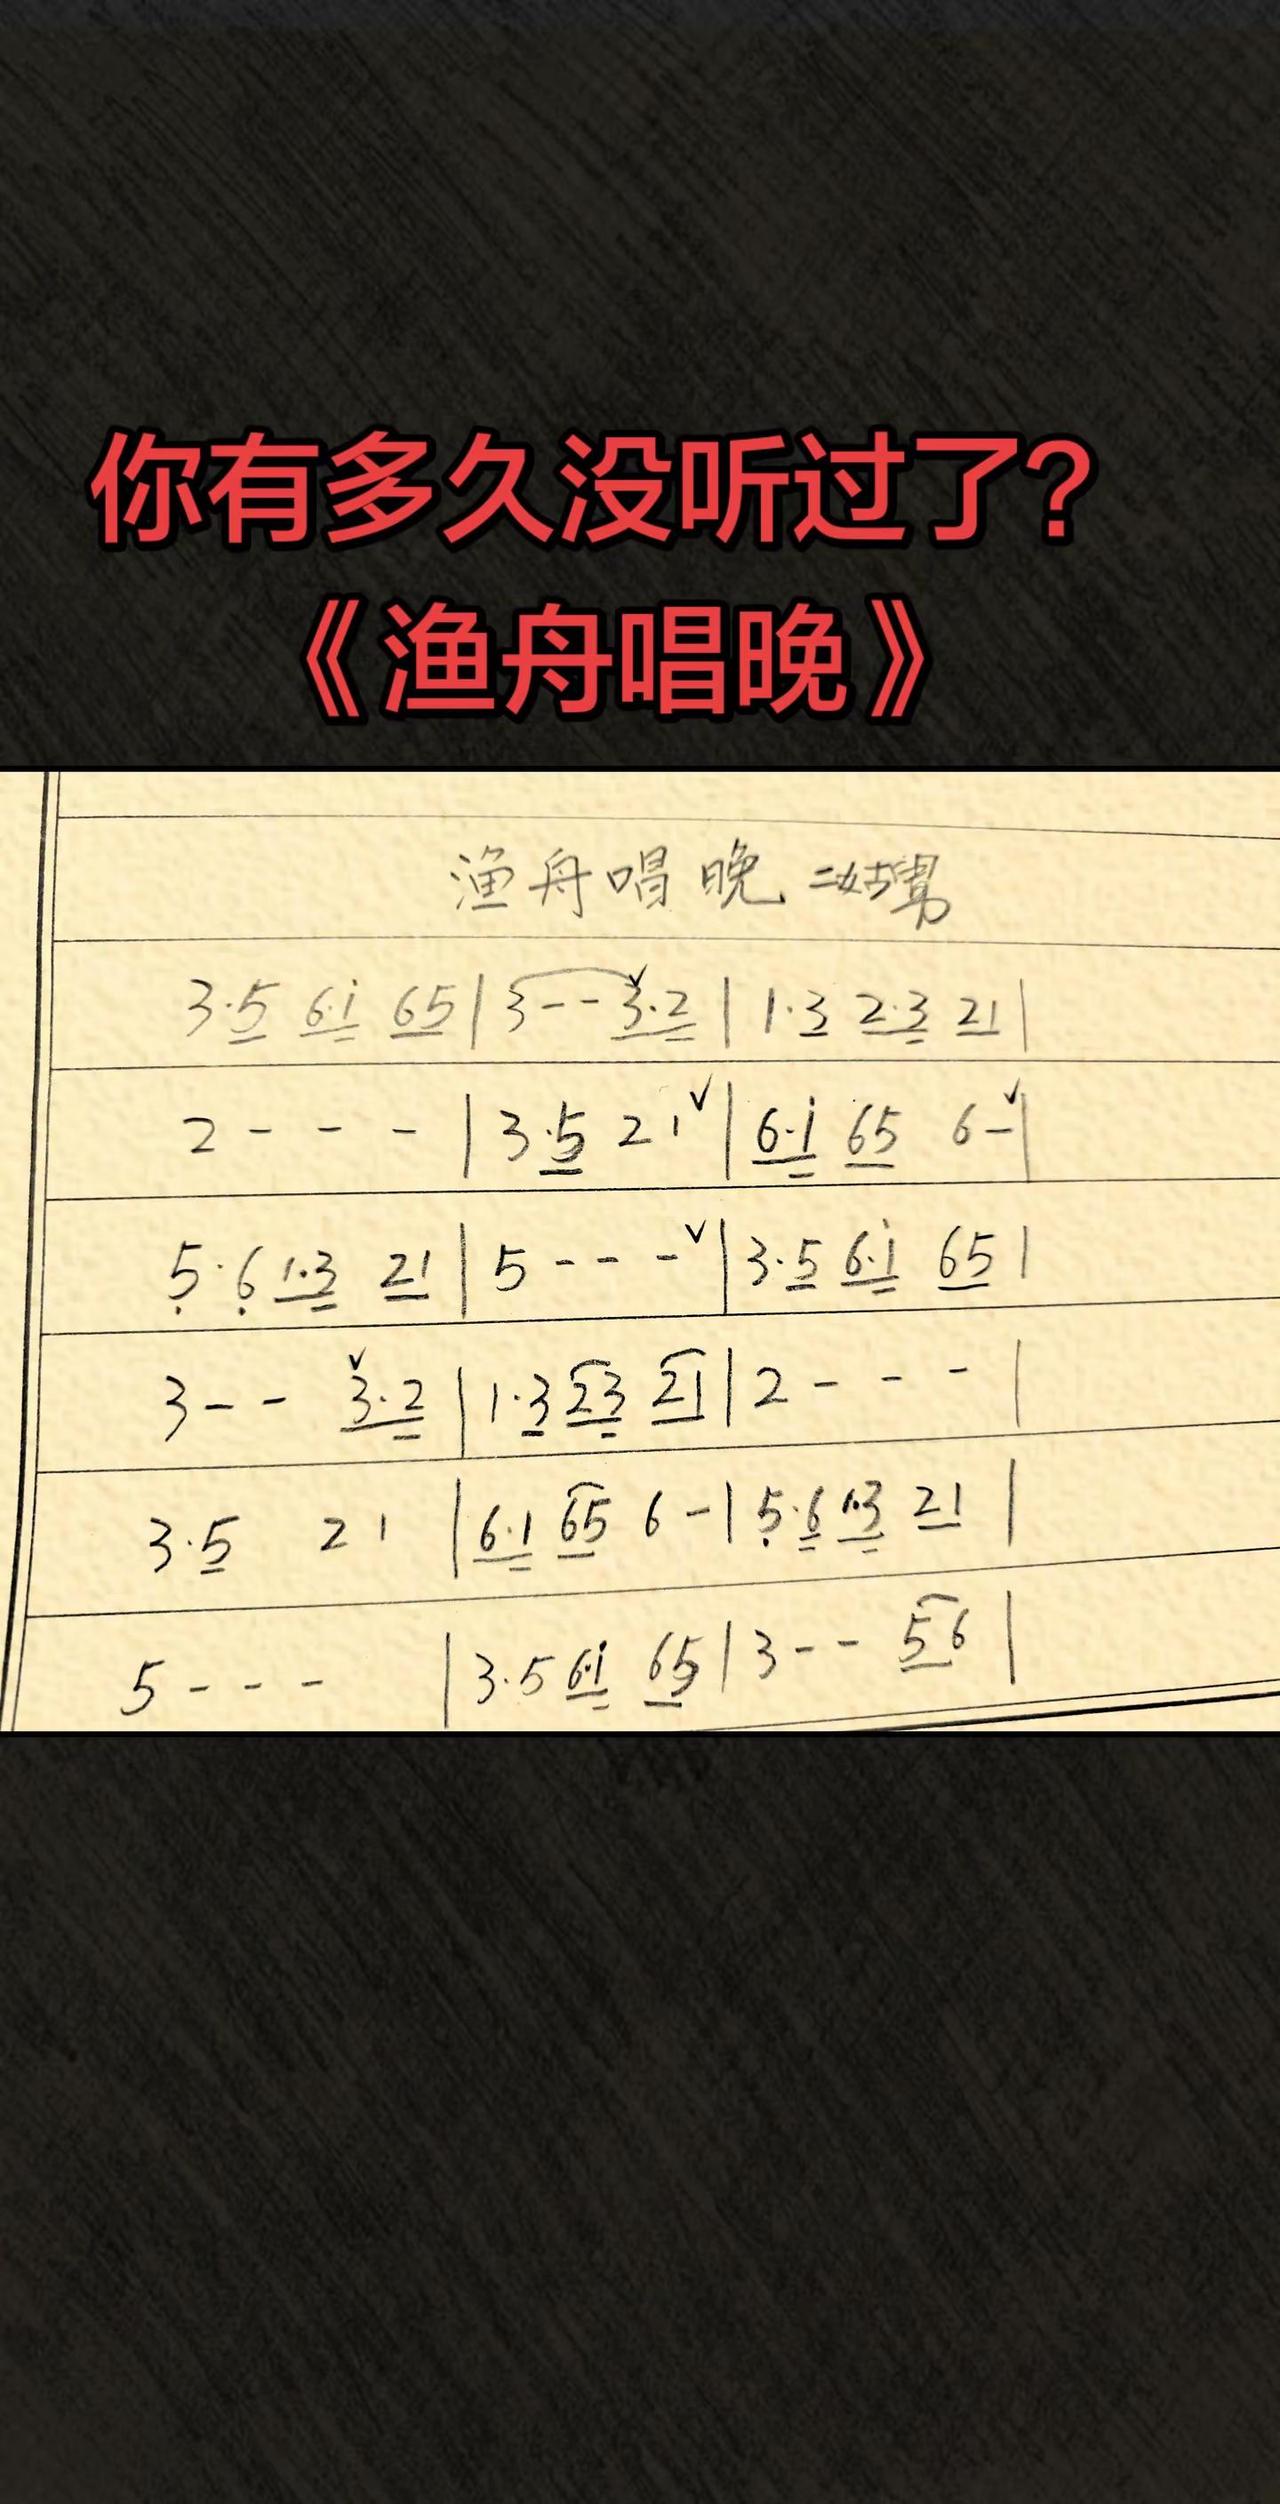 你有多久没听过了?
《渔舟唱晚》
渔舟唱晚 二姑
3·5 6·i 65 | 3 - - 3·2 | 1·3 2·3 21 |
2 - - - | 3·5 2 1 ∨ | 6·i 65 6 - ∨ |
5·6 1·3 21 | 5 - - - ∨ | 3·5 6·i 65 |
3 - - ∨ 3·2 | 1·3 23 21 | 2 - - - |
3·5 2 1 | 6·1 65 6 - | 5·6 1·3 21 |
5 - - - | 3·5 6·i 65 | 3 - - 56 |